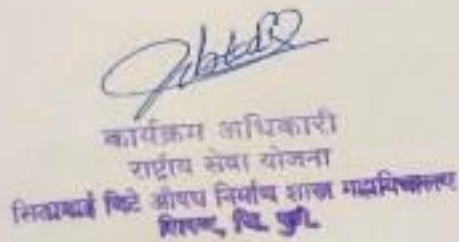 कार्यक्रम अधिकारी
राष्ट्रीय सेवा योजना
थिटे औषध निर्माण शास्त्र महाविद्यालय
जि. पुणे.